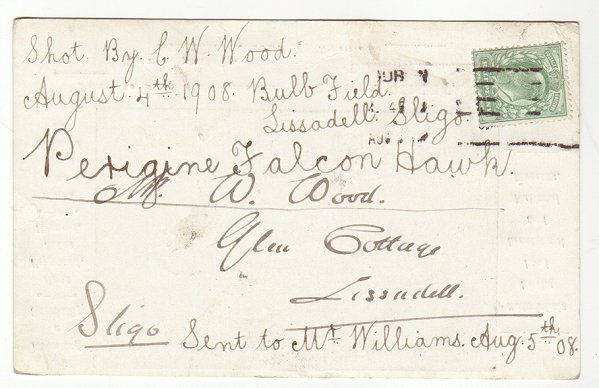 Shot. By. C W. Wood.
August. 4th. 1908. Bulb Field.
Lissadell. Sligo.
Perigine Falcon Hawk.
Mr. W. Wood.
Glen Cottage
Lissadell.
Sligo
Sent to Mr. Williams. Aug. 5th 08.